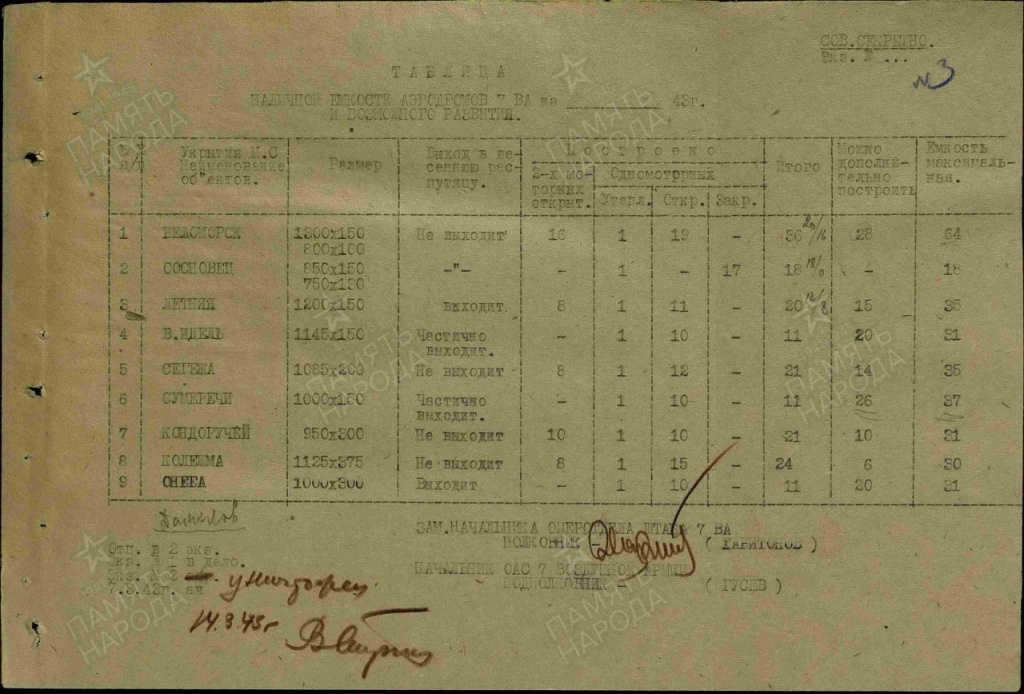 СОВ.СЕКРЕТНО.
Экз. № ...
№3
ТАБЛИЦА
НАЛИЧНОЙ ЕМКОСТИ АЭРОДРОМОВ 7 ВА на ________ 43г.
И ВОЗМОЖНОГО РАЗВИТИЯ.
п/п | Укрытия М.С Наименование об"ектов. | Размер | Выход в весеннюю распутицу. | Построено | Итого | Можно дополнительно построить | Емкость максимальная.
2-х моторных открыт. | Одномоторных
Утепл. | Откр. | Закр.
1 БЕЛОМОРСК 1300х150 Не выходит 16 1 19 – 36 20/16 28 64
800х100
2 СОСНОВЕЦ 850х150 –"– – 1 – 17 18 18/0 – 18
750х130
3 ЛЕТНЯЯ 1200х150 выходит 8 1 11 – 20 12/8 15 35
4 В.ИДЕЛЬ 1145х150 Частично выходит. – 1 10 – 11 20 31
5 СЕГЕЖА 1085х200 Не выходит 8 1 12 – 21 14 35
6 СУМЕРЕЧИ 1000х150 Частично выходит. – 1 10 – 11 26 37
7 КОНДОРУЧЕЙ 950х300 Не выходит 10 1 10 – 21 10 31
8 КОЛЕЖМА 1125х375 Не выходит 8 1 15 – 24 6 30
9 ОНЕГА 1000х300 Выходит – 1 10 – 11 20 31
ЗАМ.НАЧАЛЬНИКА ОПЕРОТДЕЛА ШТАБА 7 ВА
ПОЛКОВНИК – ( ХАРИТОНОВ )
НАЧАЛЬНИК ОАС 7 ВОЗДУШНОЙ АРМИИ
ПОДПОЛКОВНИК – ( ГУСЕВ )
Отп. в 2 экз.
Экз. № 1 в дело.
Экз. № 2
7.3.43г. ан
14.3.43г
ПАМЯТЬ НАРОДА
ПАМЯТЬ НАРОДА
ПАМЯТЬ НАРОДА
ПАМЯТЬ НАРОДА
ПАМЯТЬ НАРОДА
ПАМЯТЬ НАРОДА
ПАМЯТЬ НАРОДА